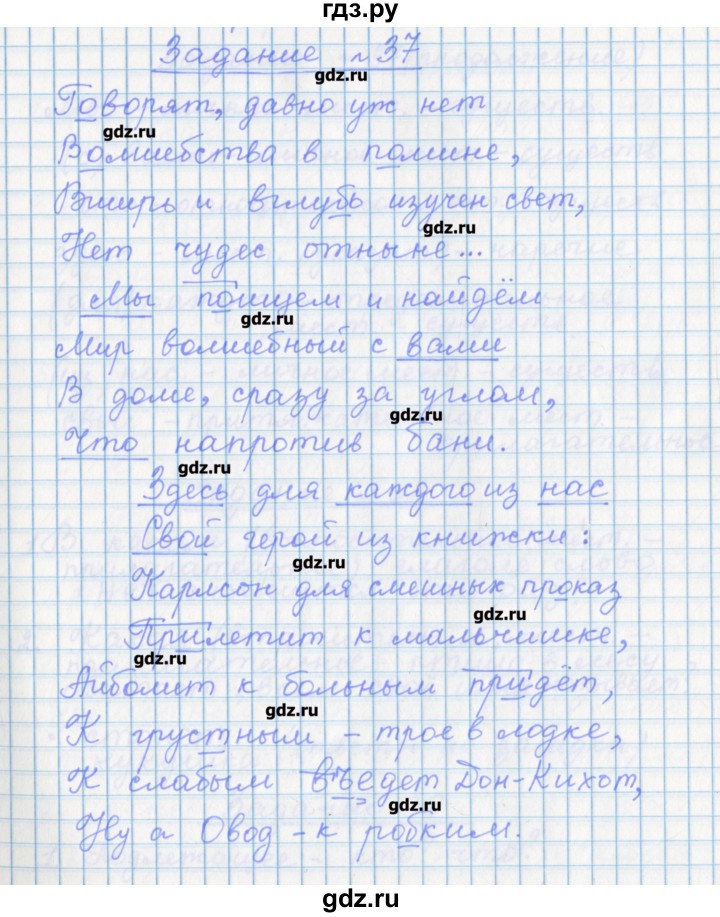 гдз.ру
Задание №37
gdz.ru
Говорят, давно уж нет
gdz.ru
Волшебства в помине,
Вширь и вглубь изучен свет,
gdz.ru
Нет чудес отныне...
Мы поищем и найдём
gdz.ru
Мир волшебный с вами
В доме, сразу за углом,
gdz.ru
Что напротив бани.
gdz.ru
Здесь для каждого из нас
Свой герой из книжки:
gdz.ru
Карлсон для смешных проказ
gdz.ru
Прилетит к мальчишке,
gdz.ru
Айболит к больным придёт,
gdz.ru
К грустным – трое в лодке,
К слабым въедет Дон-Кихот,
gdz.ru
Ну а Овод – к робким.
gdz.ru